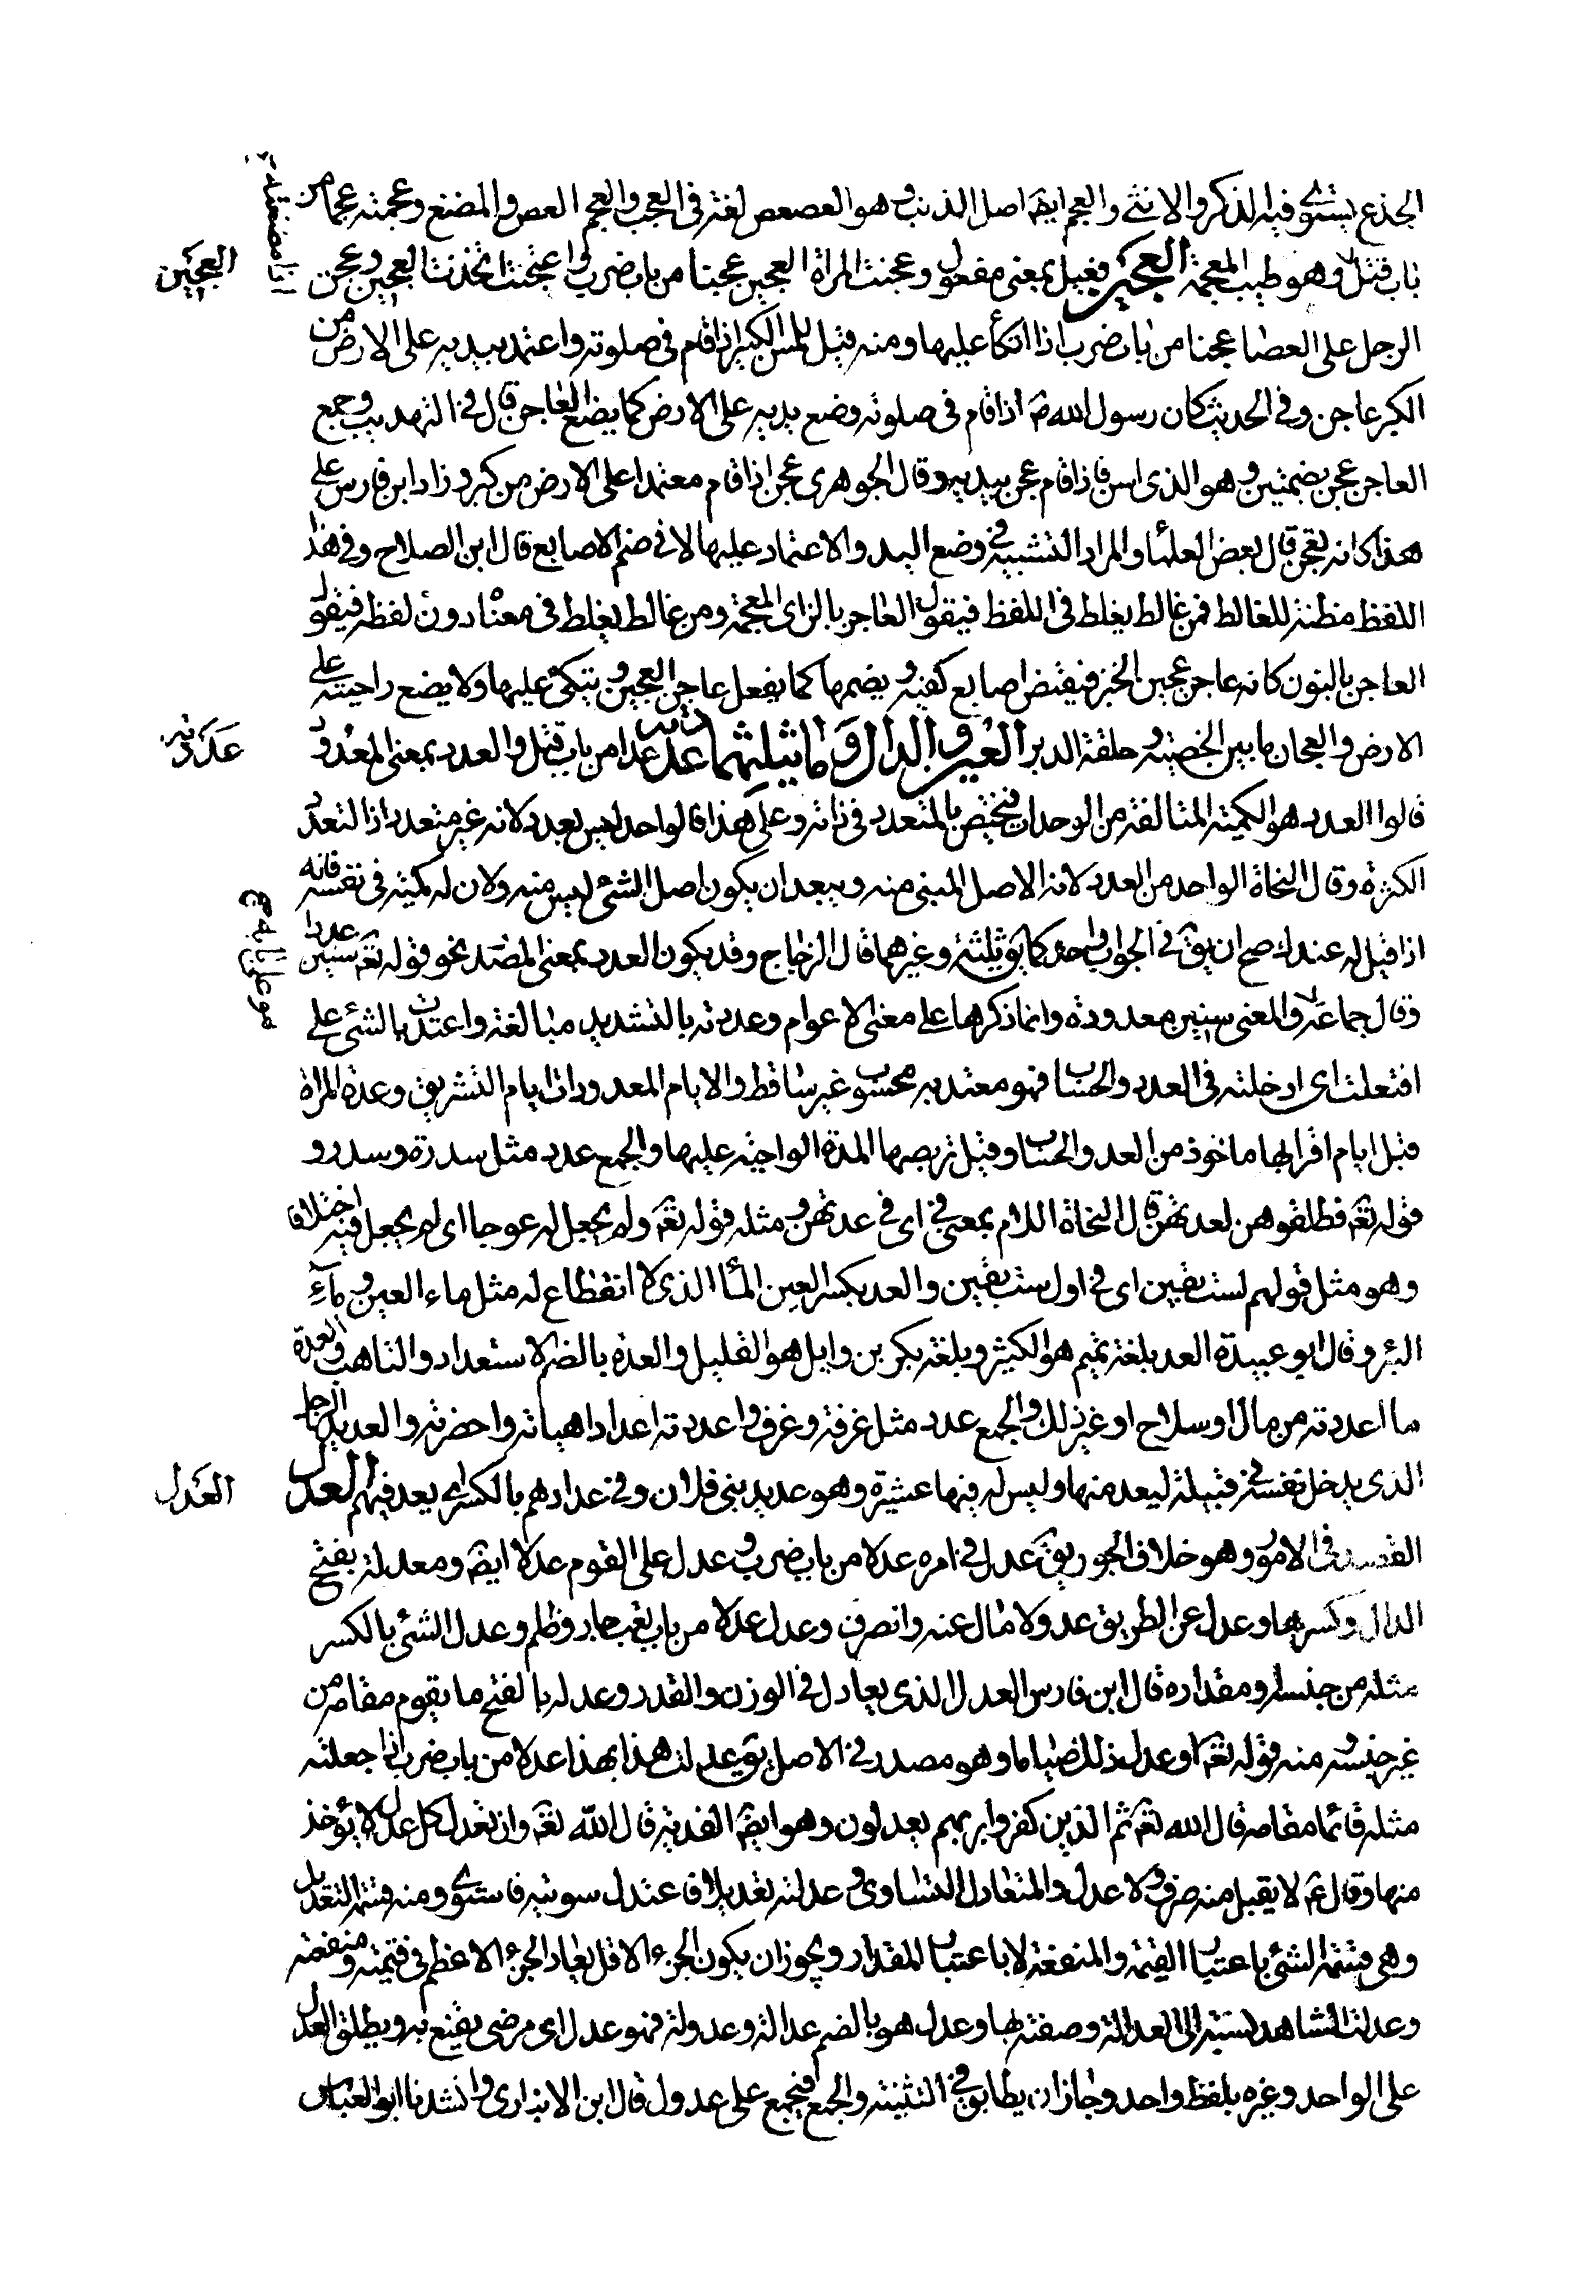 الجذع يستوى فيه الذكر والانثى والعجم ايضا اصل الذنب وهو العصعص لغة فى العجب والعجم العض والمضغ وعجمته عجما من
اذا مضغته
باب قتل وهو طيب المعجمة العجين فعيل بمعنى مفعول وعجنت المراة العجين عجنا من باب ضرب واعتجنت اتخذت العجين وعجن
العجين
الرجل على العصا عجنا من باب ضرب اذا اتكأ عليها ومنه قيل للمسن الكبير اذا قام فى صلوته واعتمد بيديه على الارض من
الكبر عاجن وفى الحديث كان رسول الله ص اذا قام فى صلوته وضع يديه على الارض كما يضع العاجن قال فى التهذيب وجمع
العاجن عجن بضمتين وهو الذى اسن فاذا قام عجن بيديه وقال الجوهرى عجن اذا قام معتمدا على الارض من كبر وزاد ابن فارس على
هذا كانه يعجن قال بعض العلماء والمراد التشبيه فى وضع اليد والاعتماد عليها لا فى ضم الاصابع قال ابن الصلاح وفى هذا
اللفظ مظنة للغالط فمن غالط يغلط فى اللفظ فيقول العاجز بالزاى المعجمة ومن غالط يغلط فى معناه دون لفظه فيقول
العاجن بالنون كانه عاجن عجين الخبز فيقبض اصابع كفيه ويضمها كما يفعل عاجن العجين ويتكئ عليها ولا يضع راحيته على
الارض والعجان ما بين الخصية وحلقة الدبر العين والدال وما يثلثهما عددته عدا من باب قتل والعدد بمعنى المعدود
عددته
قالوا العدد هو الكمية المتالفة من الوحدات فيختص بالمتعدد فى ذاته وعلى هذا فالواحد ليس بعدد لانه غير متعدد اذ التعدد
الكثرة وقال النحاة الواحد من العدد لانه الاصل المبنى منه ويبعد ان يكون اصل الشئ ليس منه ولان له كمية فى نفسه فانه
اذا قيل كم عندك صح ان يق فى الجواب واحد كما يق ثلثة وغيرهما قال الزجاج وقد يكون العدد بمعنى المصدر نحو قوله تعم سنين عددا
وقال جماعة والمعنى سنين معدودة وانما ذكرها على معنى الاعوام وعددته بالتشديد مبالغة واعتددت بالشئ على
افتعلت اى ادخلته فى العدد والحساب فهو معتد به محسوب غير ساقط والايام المعدودات ايام التشريق وعدة المراة
قيل ايام اقرائها ماخوذ من العد والحساب وقيل تربصها المدة الواجبة عليها والجمع عدد مثل سدرة وسدر و
قوله تعم فطلقوهن لعدتهن قال النحاة اللام بمعنى فى اى فى عدتهن ومثله قوله تعم ولم يجعل له عوجا اى لم يجعل فيه اختلافا
وهو مثل قولهم لست بقين اى فى اول ست بقين والعد بكسر العين الماء الذى لا انقطاع له مثل ماء العين وماء
البئر وقال ابو عبيدة العد بلغة تميم هو الكثير وبلغة بكر بن وايل هو القليل والعدة بالضم الاستعداد والتاهب والعدة
ما اعددته من مال او سلاح او غير ذلك والجمع عدد مثل غرفة وغرف واعددته اعدادا هياته واحضرته والعديد الرجل
الذى يدخل نفسه فى قبيلة ليعد منها وليس له فيها عشيرة وهو عديد بنى فلان وفى عدادهم بالكسر اى يعد فيهم العدل
العدل
القصد فى الامور وهو خلاف الجور يق عدل فى امره عدلا من باب ضرب وعدل على القوم عدلا ايضا ومعدلة بفتح
الدال وكسرها وعدل عن الطريق عدولا مال عنه وانصرف وعدل عدلا من باب تعب جار وظلم وعدل الشئ بالكسر
مثله من جنسه او مقداره قال ابن فارس العدل الذى يعادل فى الوزن والقدر وعدله بالفتح ما يقوم مقامه من
غير جنسه ومنه قوله تعم او عدل ذلك صياما وهو مصدر فى الاصل يق عدلت هذا بهذا عدلا من باب ضرب اذا جعلته
مثله قائما مقامه قال الله تعم ثم الذين كفروا بربهم يعدلون وهو ايضا الفدية قال الله تعم وان تعدل كل عدل لا يؤخذ
منها وقال ع لا يقبل منه صرف ولا عدل والتعادل التساوى وعدلته تعديلا فاعتدل سويته فاستوى ومنه قسمة التعديل
وهى قسمة الشئ باعتبار القيمة والمنفعة لا باعتبار المقدار ويجوز ان يكون الجزء الاقل يعادل الجزء الاعظم فى قيمته ومنفعته
وعدلت الشاهد نسبته الى العدالة وصفته بها وعدل هو بالضم عدالة وعدولة فهو عدل اى مرضى يقنع به ويطلق العدل
على الواحد وغيره بلفظ واحد وجاز ان يطابق فى التثنية والجمع فيجمع على عدول قال ابن الانبارى وانشدنا ابو العباس